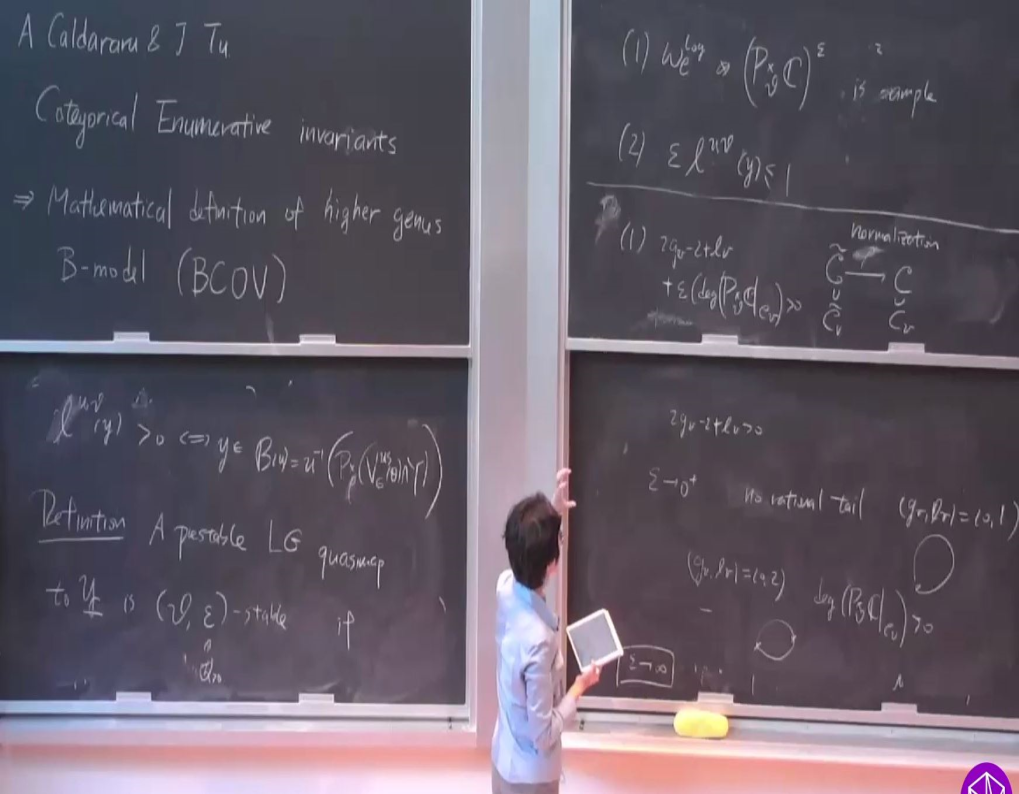 A Caldararu & J Tu
Categorical Enumerative invariants
⇒ Mathematical definition of higher genus
B-model (BCOV)
ℓ^{u,ϑ}(y) >0 ⇔ y ∈ B(u) = u^{-1}(P ×_ρ (V_G^{us}(θ) ∩ Γ))
Definition A prestable LG quasmap
to Y is (ϑ, ε)-stable if
ℚ_{>0}
(1) ω_C^{log} ⊗ (P ×_ϑ ℂ)^ε is ample
(2) ε ℓ^{u,ϑ}(y) ≤ 1
(1) 2g_v-2+l_v
+ε(deg(P ×_ϑ ℂ|_{C_v}) >0
normalization
C̃ → C
∪ ∪
C̃_v C_v
2g_v-2+l_v>0
ε→0⁺ no rational tail (g_v, l_v)=(0,1)
(g_v, l_v)=(0,2) deg(P ×_ϑ ℂ|_{C_v}) >0
ε→∞